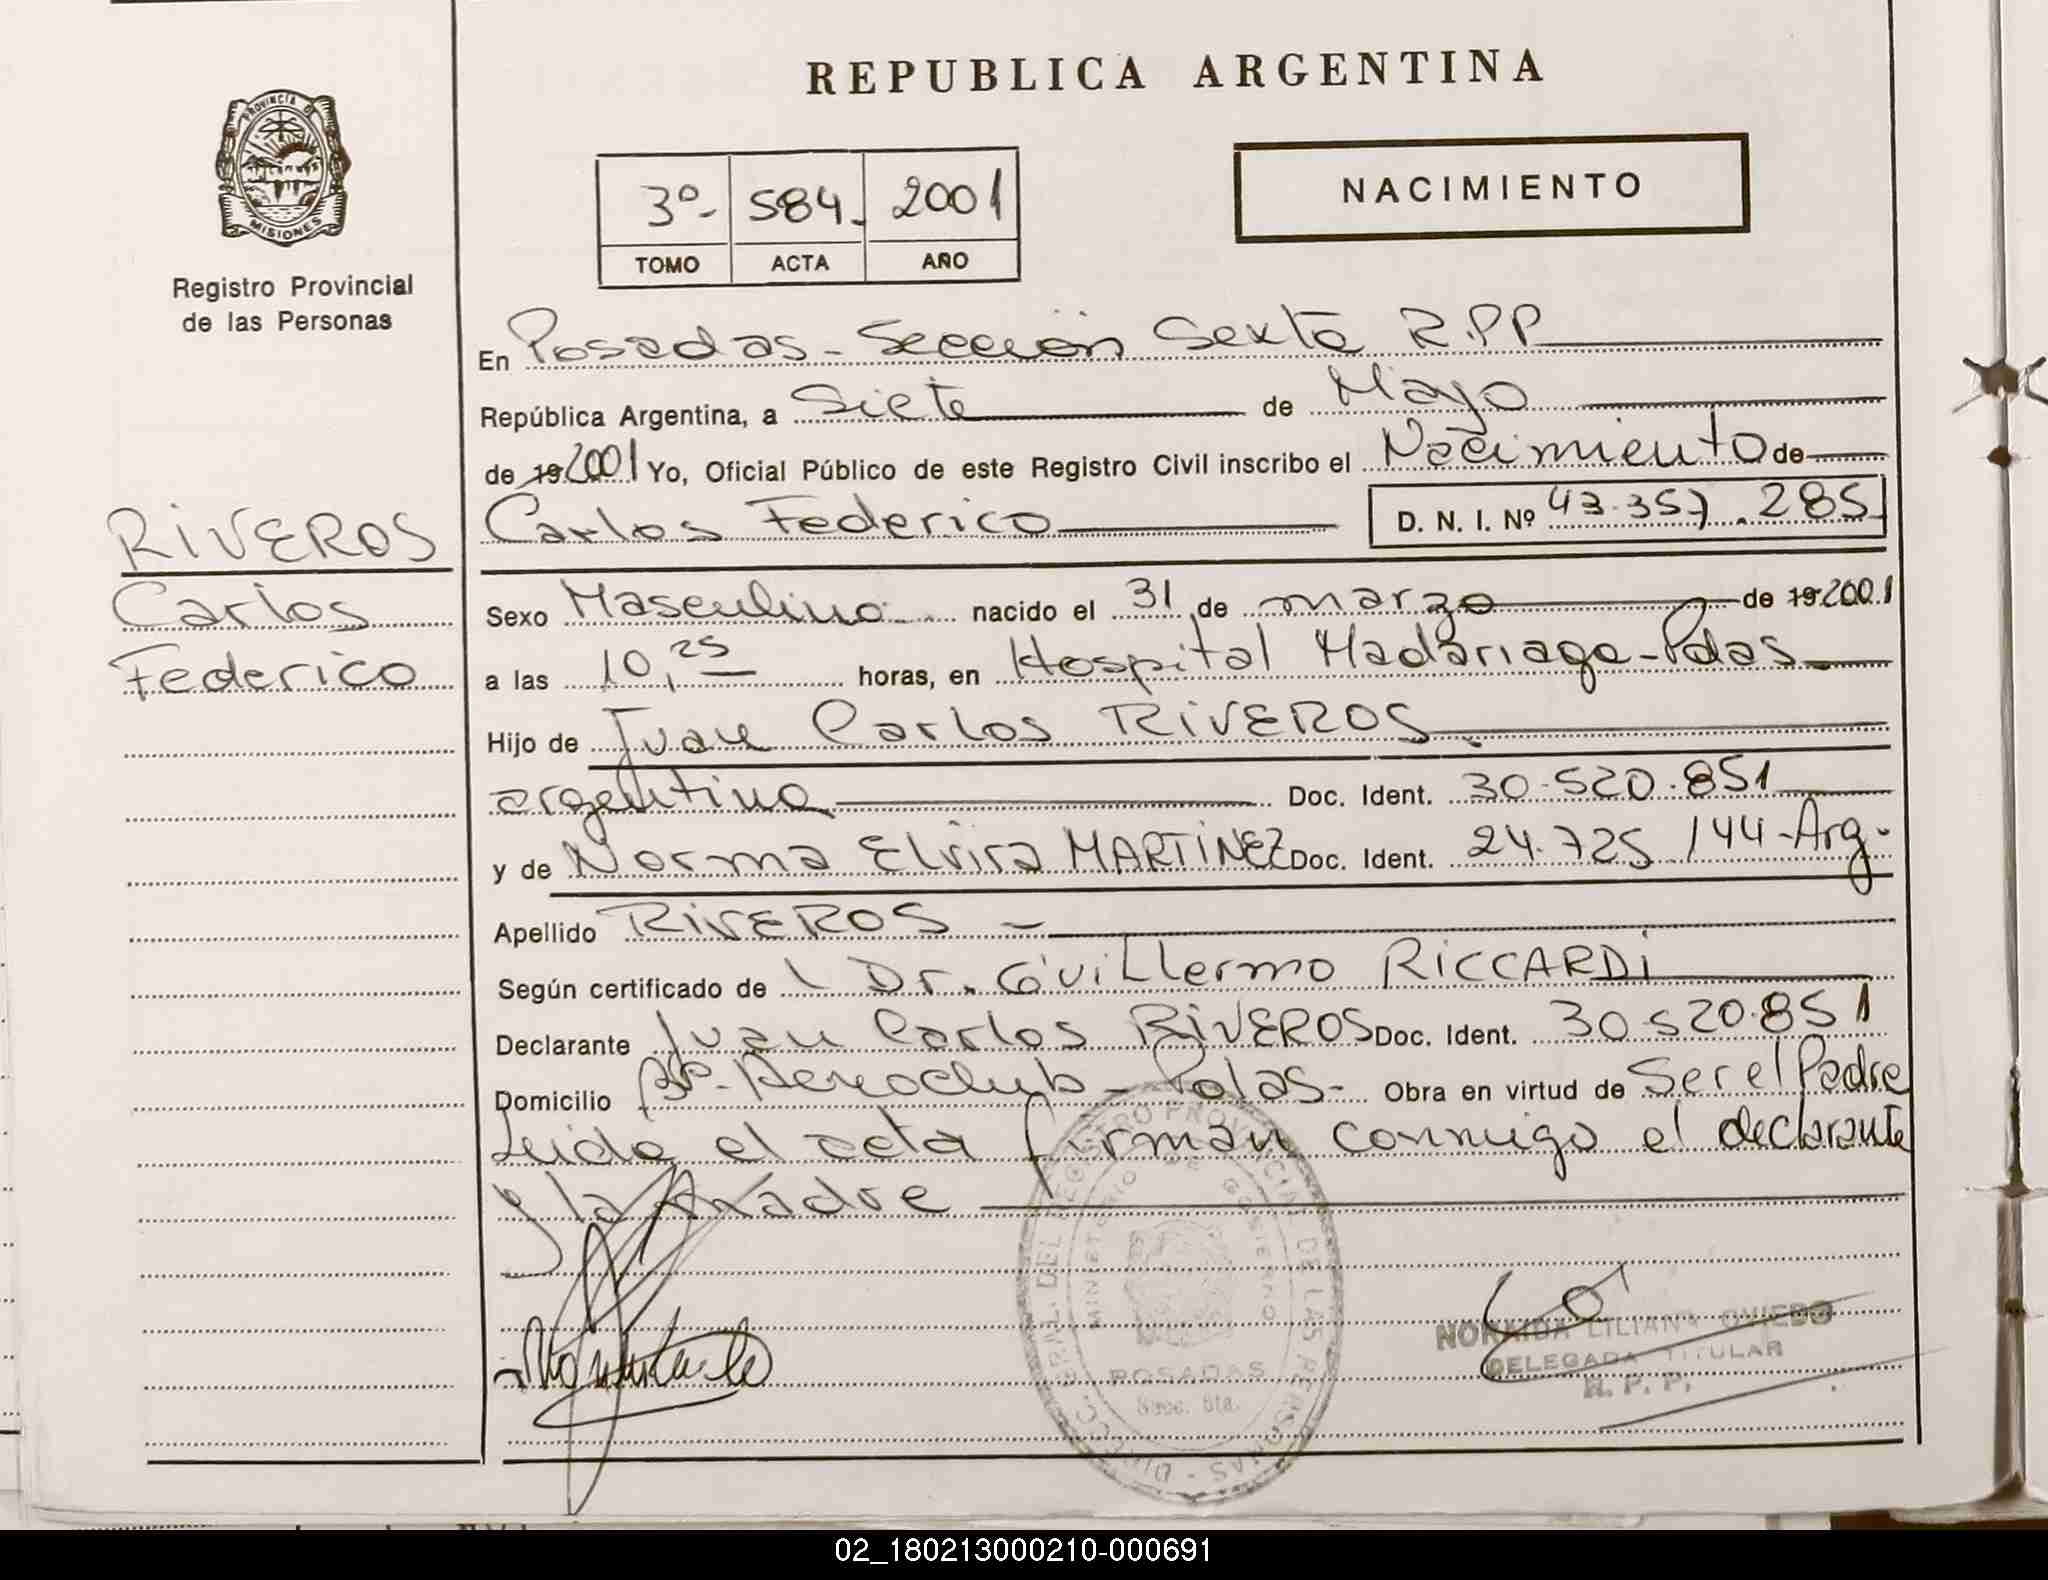 REPUBLICA ARGENTINA
PROVINCIA DE
MISIONES
Registro Provincial
de las Personas
3º- 584- 2001
TOMO ACTA AÑO
NACIMIENTO
En Posadas - Sección Sexta R.P.P
República Argentina, a Siete de Mayo
de 19 2001 Yo, Oficial Público de este Registro Civil inscribo el Nacimiento de
Carlos Federico D. N. I. Nº 43.357.285
RIVEROS
Carlos
Federico
Sexo Masculino nacido el 31 de marzo de 19 2001
a las 10,25 horas, en Hospital Madariaga - Pdas -
Hijo de Juan Carlos RIVEROS
argentino Doc. Ident. 30.520.851
y de Norma Elvira MARTINEZ Doc. Ident. 24.725.144 - Arg.
Apellido RIVEROS -
Según certificado de l Dr. Guillermo RICCARDI
Declarante Juan Carlos RIVEROS Doc. Ident. 30.520.851
Domicilio Bº - Aeroclub - Pdas - Obra en virtud de Ser el Padre
Leida el acta firman conmigo el declarante
y la Madre
DEL REGISTRO PROVINCIAL DE LAS PERSONAS
MINISTERIO DE GOBIERNO
POSADAS
Secc. 6ta.
LILIANA OVIEDO
DELEGADA TITULAR
R. P. P.
02_180213000210-000691